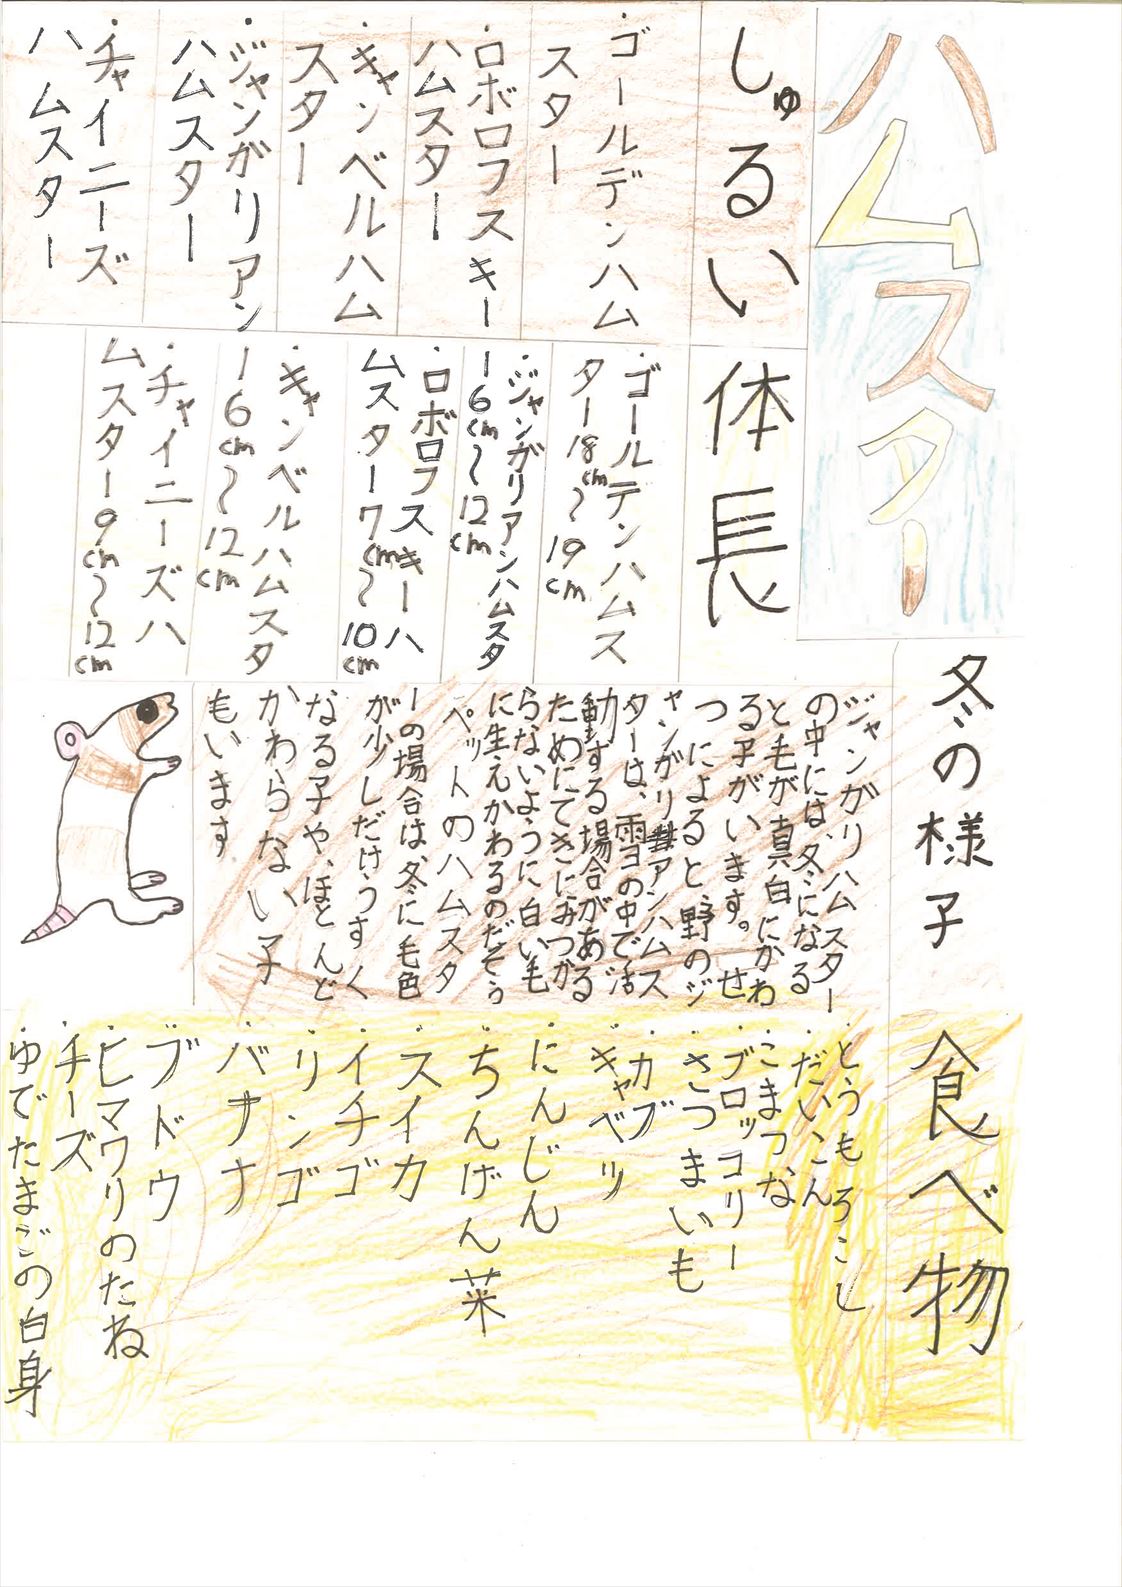 ハムスター
しゅるい
・ゴールデンハム
スター
・ロボロフスキー
ハムスター
・キャンベルハム
スター
・ジャンガリアン
ハムスター
・チャイニーズ
ハムスター
体長
・ゴールデンハムス
ター18cm〜19cm
・ジャンガリアンハムスタ
ー6cm〜12cm
・ロボロフスキーハ
ムスター7cm〜10cm
・キャンベルハムスタ
ー6cm〜12cm
・チャイニーズハ
ムスター9cm〜12cm
冬の様子
ジャンガリハムスター
の中には、冬になる
と毛が真白にかわ
る子がいます。せ
つによると、野のジ
ャンガリアンハムス
ターは、雪の中で活
動する場合がある
ためにてきにみつか
らないように白い毛
に生えかわるのだそう
ペットのハムスタ
ーの場合は、冬に毛色
が少しだけ、うすく
なる子や、ほとんど
かわらない子
もいます
食べ物
・とうもろこし
・だいこん
・こまつな
・ブロッコリー
・さつまいも
・カブ
・キャベツ
・にんじん
・ちんげん菜
・スイカ
・イチゴ
・リンゴ
・バナナ
・ブドウ
・ヒマワリのたね
・チーズ
・ゆでたまごの白身